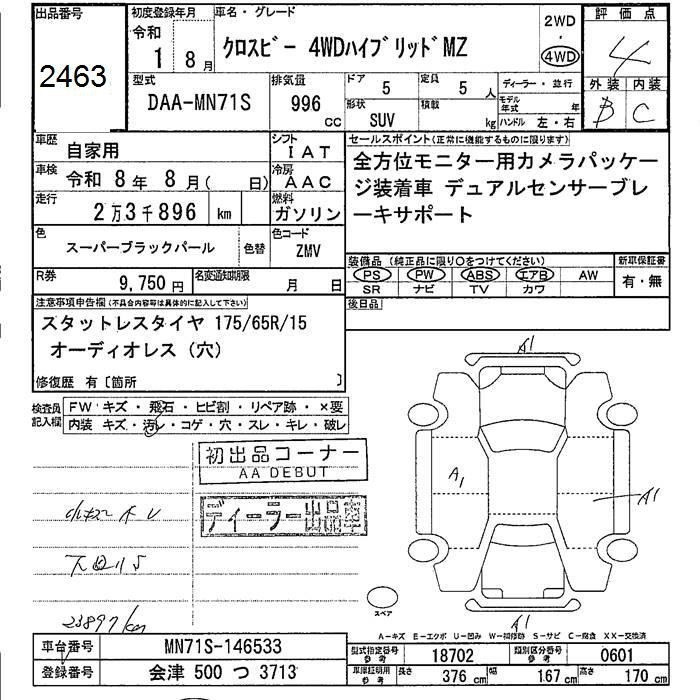 出品番号
2463
初度登録年月
令和
1 8月
車名・グレード
クロスビー 4WDハイブリッドMZ
2WD
・
4WD
評価点
4
外装 内装
B C
型式
DAA-MN71S
排気量
996
CC
ドア
5
定員
5人
形状
SUV
積載
kg
ディーラー・並行
モデル年式 年
ハンドル 左・右
車歴
自家用
シフト
IAT
車検
令和 8年 8月( 日)
冷房
AAC
走行
2万3千896 km
燃料
ガソリン
色
スーパーブラックパール
色替
色コード
ZMV
R券
9,750円
名変通知期限
月 日
セールスポイント(正常に機能するものに限ります)
全方位モニター用カメラパッケー
ジ装着車 デュアルセンサーブレ
ーキサポート
装備品(純正品に限り○をつけてください)
PS PW ABS エアB AW
SR ナビ TV カワ
新車保証書
有・無
後日品
注意事項申告欄(不具合内容等は具体的に記入して下さい)
スタットレスタイヤ 175/65R/15
オーディオレス(穴)
修復歴 有〔箇所 〕
検査員
記入欄
FW キズ・飛石・ヒビ割・リペア跡・×要
内装 キズ・汚レ・コゲ・穴・スレ・キレ・破レ
初出品コーナー
AA DEBUT
ディーラー出品車
23897km
A1
A1
A1
A1
スペア
A-キズ E-エクボ U-凹み W-補修跡 S-サビ C-腐食 XX-交換済
車台番号
MN71S-146533
登録番号
会津 500 つ 3713
型式指定番号
参考
18702
類別区分番号
参考
0601
車庫証明用
参考
長さ 376 cm
幅 167 cm
高さ 170 cm